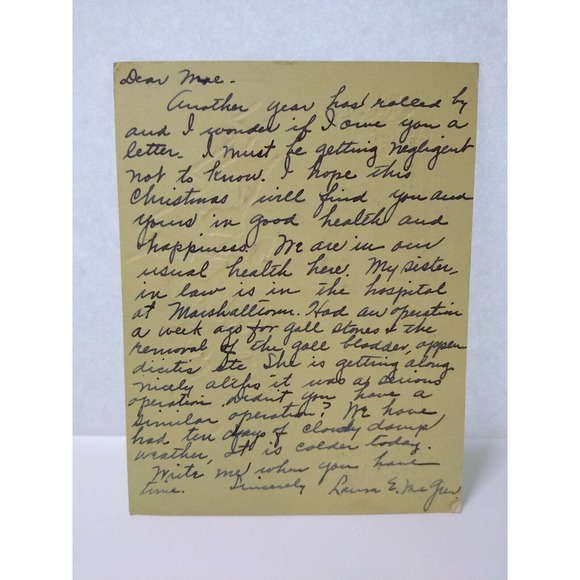 Dear Mae.
Another year has rolled by
and I wonder if I owe you a
letter. I must be getting negligent
not to know. I hope this
Christmas will find you and
yours in good health and
happiness. We are in our
usual health here. My sister-
in law is in the hospital
at Marshalltown. Had an operation
a week ago for gall stones & the
removal of the gall bladder, appen
dicitis etc She is getting along
nicely altho it was a serious
operation. Didn't you have a
similar operation? We have
had ten days of cloudy damp
weather, it is colder today.
Write me when you have
time. Sincerely Laura E. McGrew